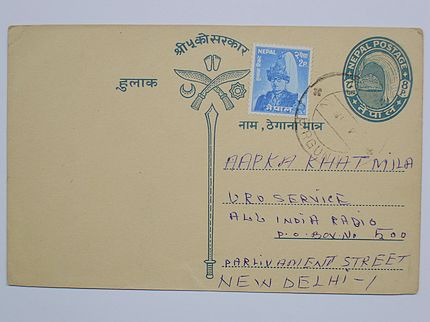 श्री ५ को सरकार
हुलाक
NEPAL
2P
नेपाल
NEPAL POSTAGE
नेपाल
नाम, ठेगाना मात्र
AAPKA KHAT MILA
URD SERVICE
ALL INDIA RADIO
P.O. BOX No 500
PARLIVAMENT STREET
NEW DELHI-1